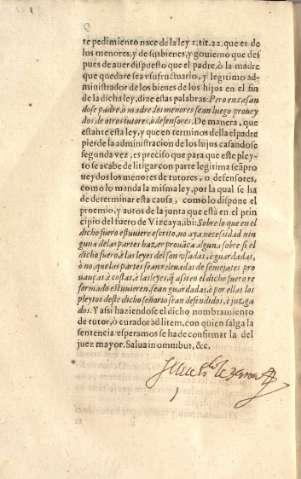 te pedimiento nace de la ley 2.tit.22. que es de
los menores, y de sus bienes, y gouierno que des
pues de auer dispuesto que el padre, ò la madre
que quedare sea vsufructuario, y legitimo ad-
ministrador de los bienes de los hijos en el fin
de la dicha ley, dize estas palabras: Pero en casan
dose padre, ò madre, los menores sean luego prouey
dos, de otros tutores, ò defensores. De manera, que
estante esta ley, y que en terminos della el padre
pierde la administracion de los hijos casandose
segunda vez, es preciso que para que este pley-
to se acabe de litigar con parte legitima seã pro
reydos los menores de tutores, o defensores,
como lo manda la misma ley, por la qual se ha
de determinar esta causa, como lo dispone el
proemio, y autos de la junta que està en el prin
cipio del fuero de Vizcaya, ibi: Sobre lo que en el
dicho fuero estuuiere escrito, no aya necessidad nin
guna de las partes hazer prouãça alguna sobre si el
dicho fuero, ò las leyes del son vsadas, ò guardadas,
ò no, que las partes sean releuadas de semejates pro
uanças, ò costas, ò las leyes, q̃ assi en el dicho fuero re
formado estuuieren, sean guardadas, ò por ellas los
pleytos deste dicho señorio sean defendidos, ò juzga
dos. Y assi haziendose el dicho nombramiento
de tutor, ò curador ad litem, con quien salga la
sentencia esperamos se ha de confirmar la del
juez mayor. Salua in omnibus, &c.